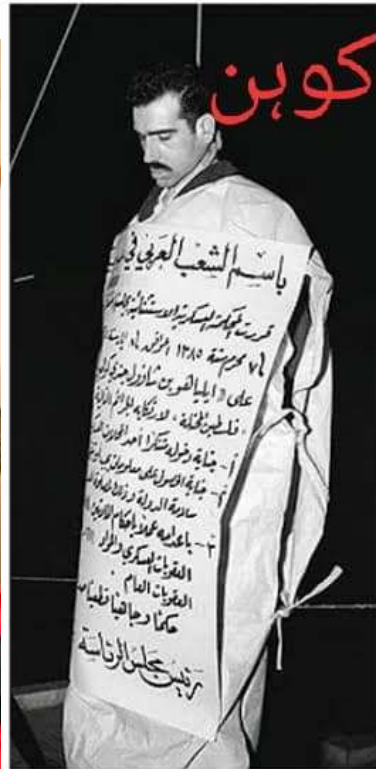 كوهن
باسم الشعب العربي في
قررت المحكمة العسكرية الاستثنائية
في ٧ محرم سنة ١٣٨٥
على «ايلياهو بن شاؤول جندي كوهين
فلسطين المحتلة» لارتكابه الجرائم
أ- جناية دخوله متنكرا احد المحلات
٢- جناية الحصول على معلومات يجب
سلامة الدولة وذلك
٣- باعدامه عملا باحكام المادتين
العقوبات العسكري والمواد
العقوبات العام
حكما وجاهيا قطعيا
رئيس مجلس الرئاسة